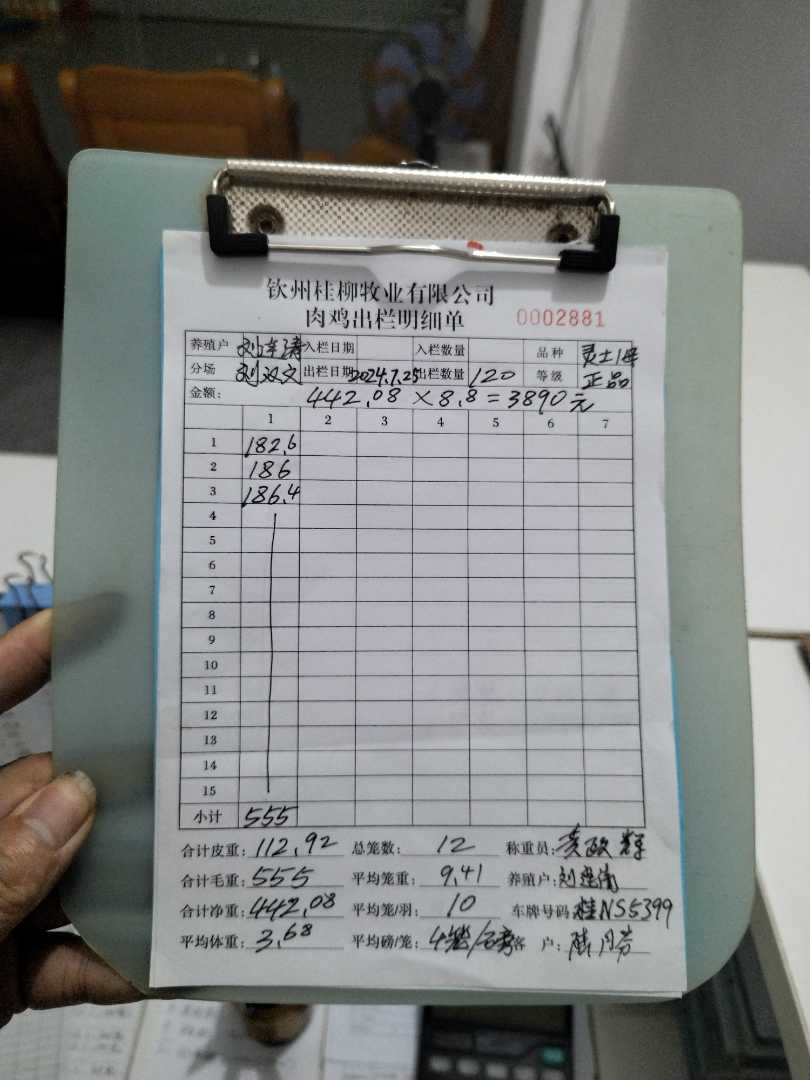 钦州桂柳牧业有限公司
肉鸡出栏明细单 0002881
养殖户 入栏日期 入栏数量 品种 灵土1母
分场 刘双文 出栏日期 2024.7.25 出栏数量 120 等级 正品
金额: 442.08 × 8.8 = 3890元
1 2 3 4 5 6 7
1 182.6
2 186
3 186.4
4
5
6
7
8
9
10
11
12
13
14
15
小计 555
合计皮重: 112.92 总笼数: 12 称重员: 黄政辉
合计毛重: 555 平均笼重: 9.41 养殖户:
合计净重: 442.08 平均笼/羽: 10 车牌号码 桂NS5399
平均体重: 3.68 平均磅/笼: 4笼/ 客户: 陆月芳